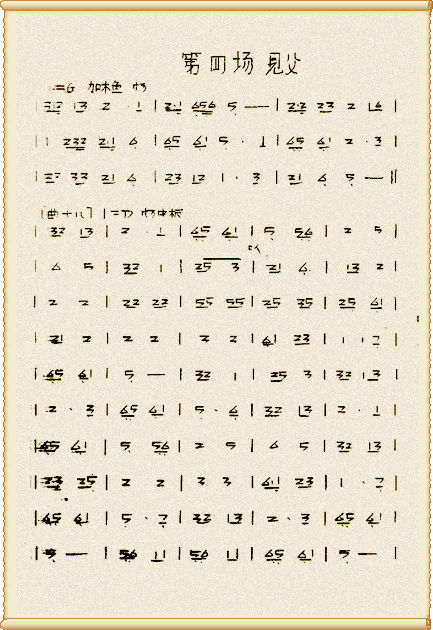 第四场 见父
1=G 加木鱼
| 32 13 2 · 1 | 2·1 656 5 — | 2·2 23 2 16 |
1 232 2·1 6 | 65 61 5 · 1 | 65 61 2 · 3 |
33 21 6 | 23 12 1 · 3 | 21 6 5 — ||
[曲十八] 1=D
| 32 13 | 2 · 1 | 65 61 | 5 56 | 2 5 |
| 6 5 | 32 1 | 25 3 | 21 6 | 13 2 |
| 2 2 | 22 22 | 55 55 | 25 35 | 25 61 |
| 21 2 | 2 2 | 2 2 | 61 23 | 1 · 2 |
| 65 61 | 5 — | 32 1 | 25 3 | 32 13 |
| 2 · 3 | 65 61 | 5 · 6 | 32 13 | 2 · 1 |
| 65 61 | 5 56 | 2 5 | 6 5 | 32 13 |
| 23 25 | 2 2 | 3 3 | 61 23 | 1 · 2 |
| 65 61 | 5 · 2 | 32 13 | 2 · 3 | 65 61 |
| 5 — | 56 11 | 56 11 | 65 61 | 5 — |